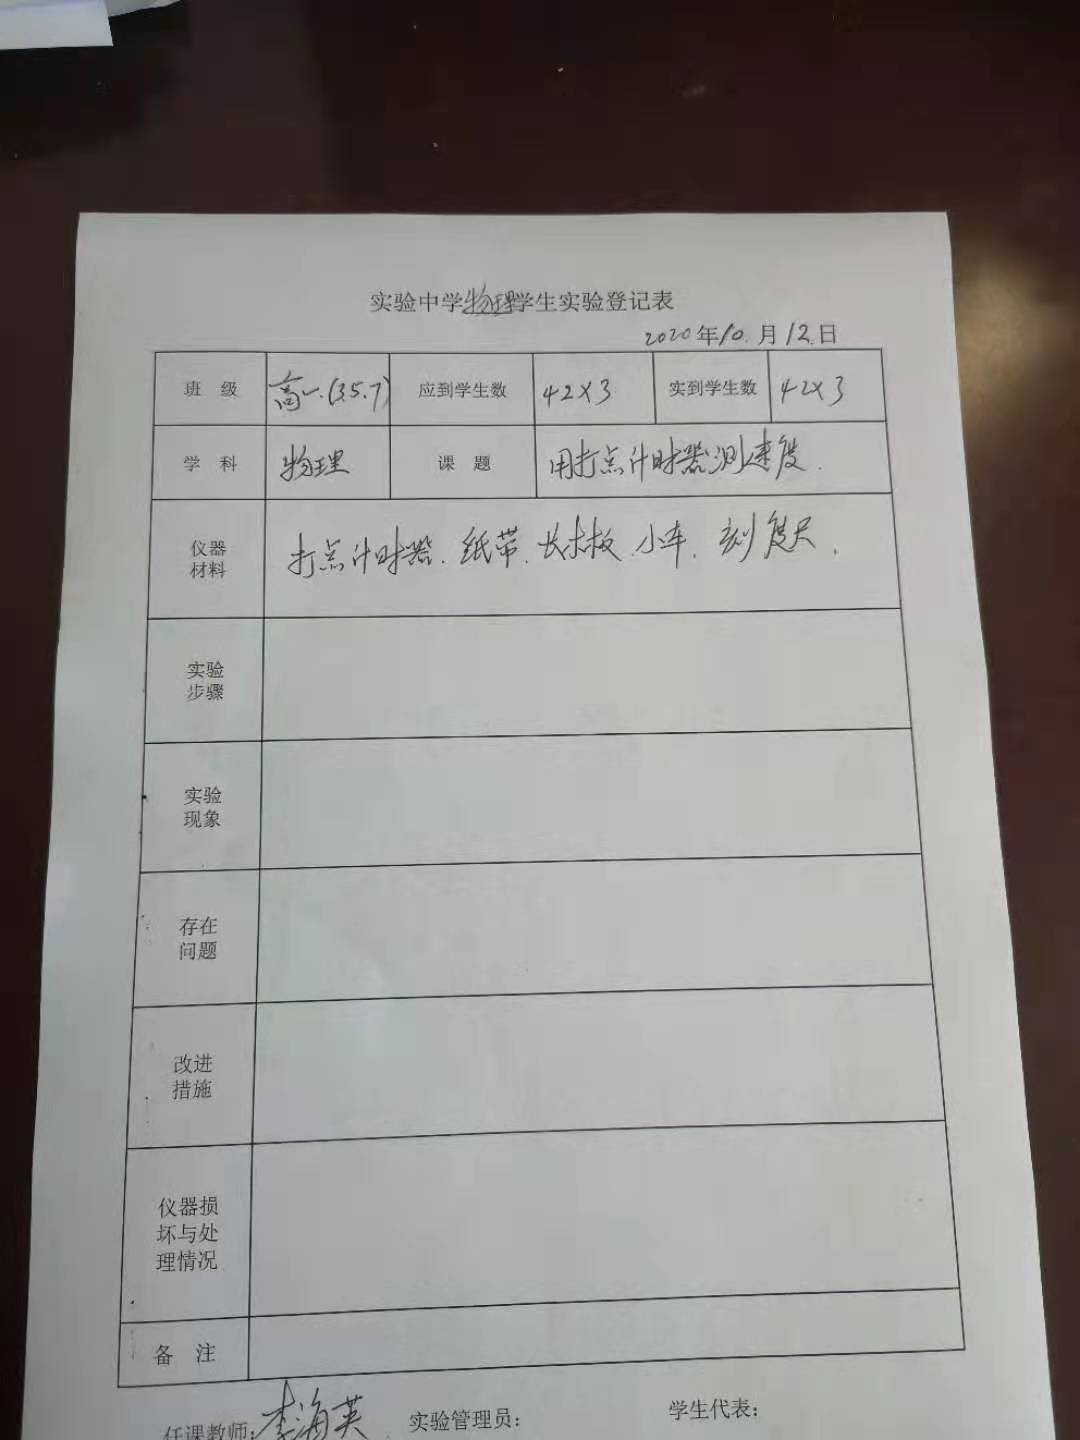 实验中学物理学生实验登记表
2020年10.月12.日
班 级 高一.(3.5.7) 应到学生数 42×3 实到学生数 42×3
学 科 物理 课 题 用打点计时器测速度.
仪器
材料
打点计时器.纸带.长木板.小车.刻度尺.
实验
步骤
实验
现象
存在
问题
改进
措施
仪器损
坏与处
理情况
备 注
任课教师:李海英 实验管理员: 学生代表: